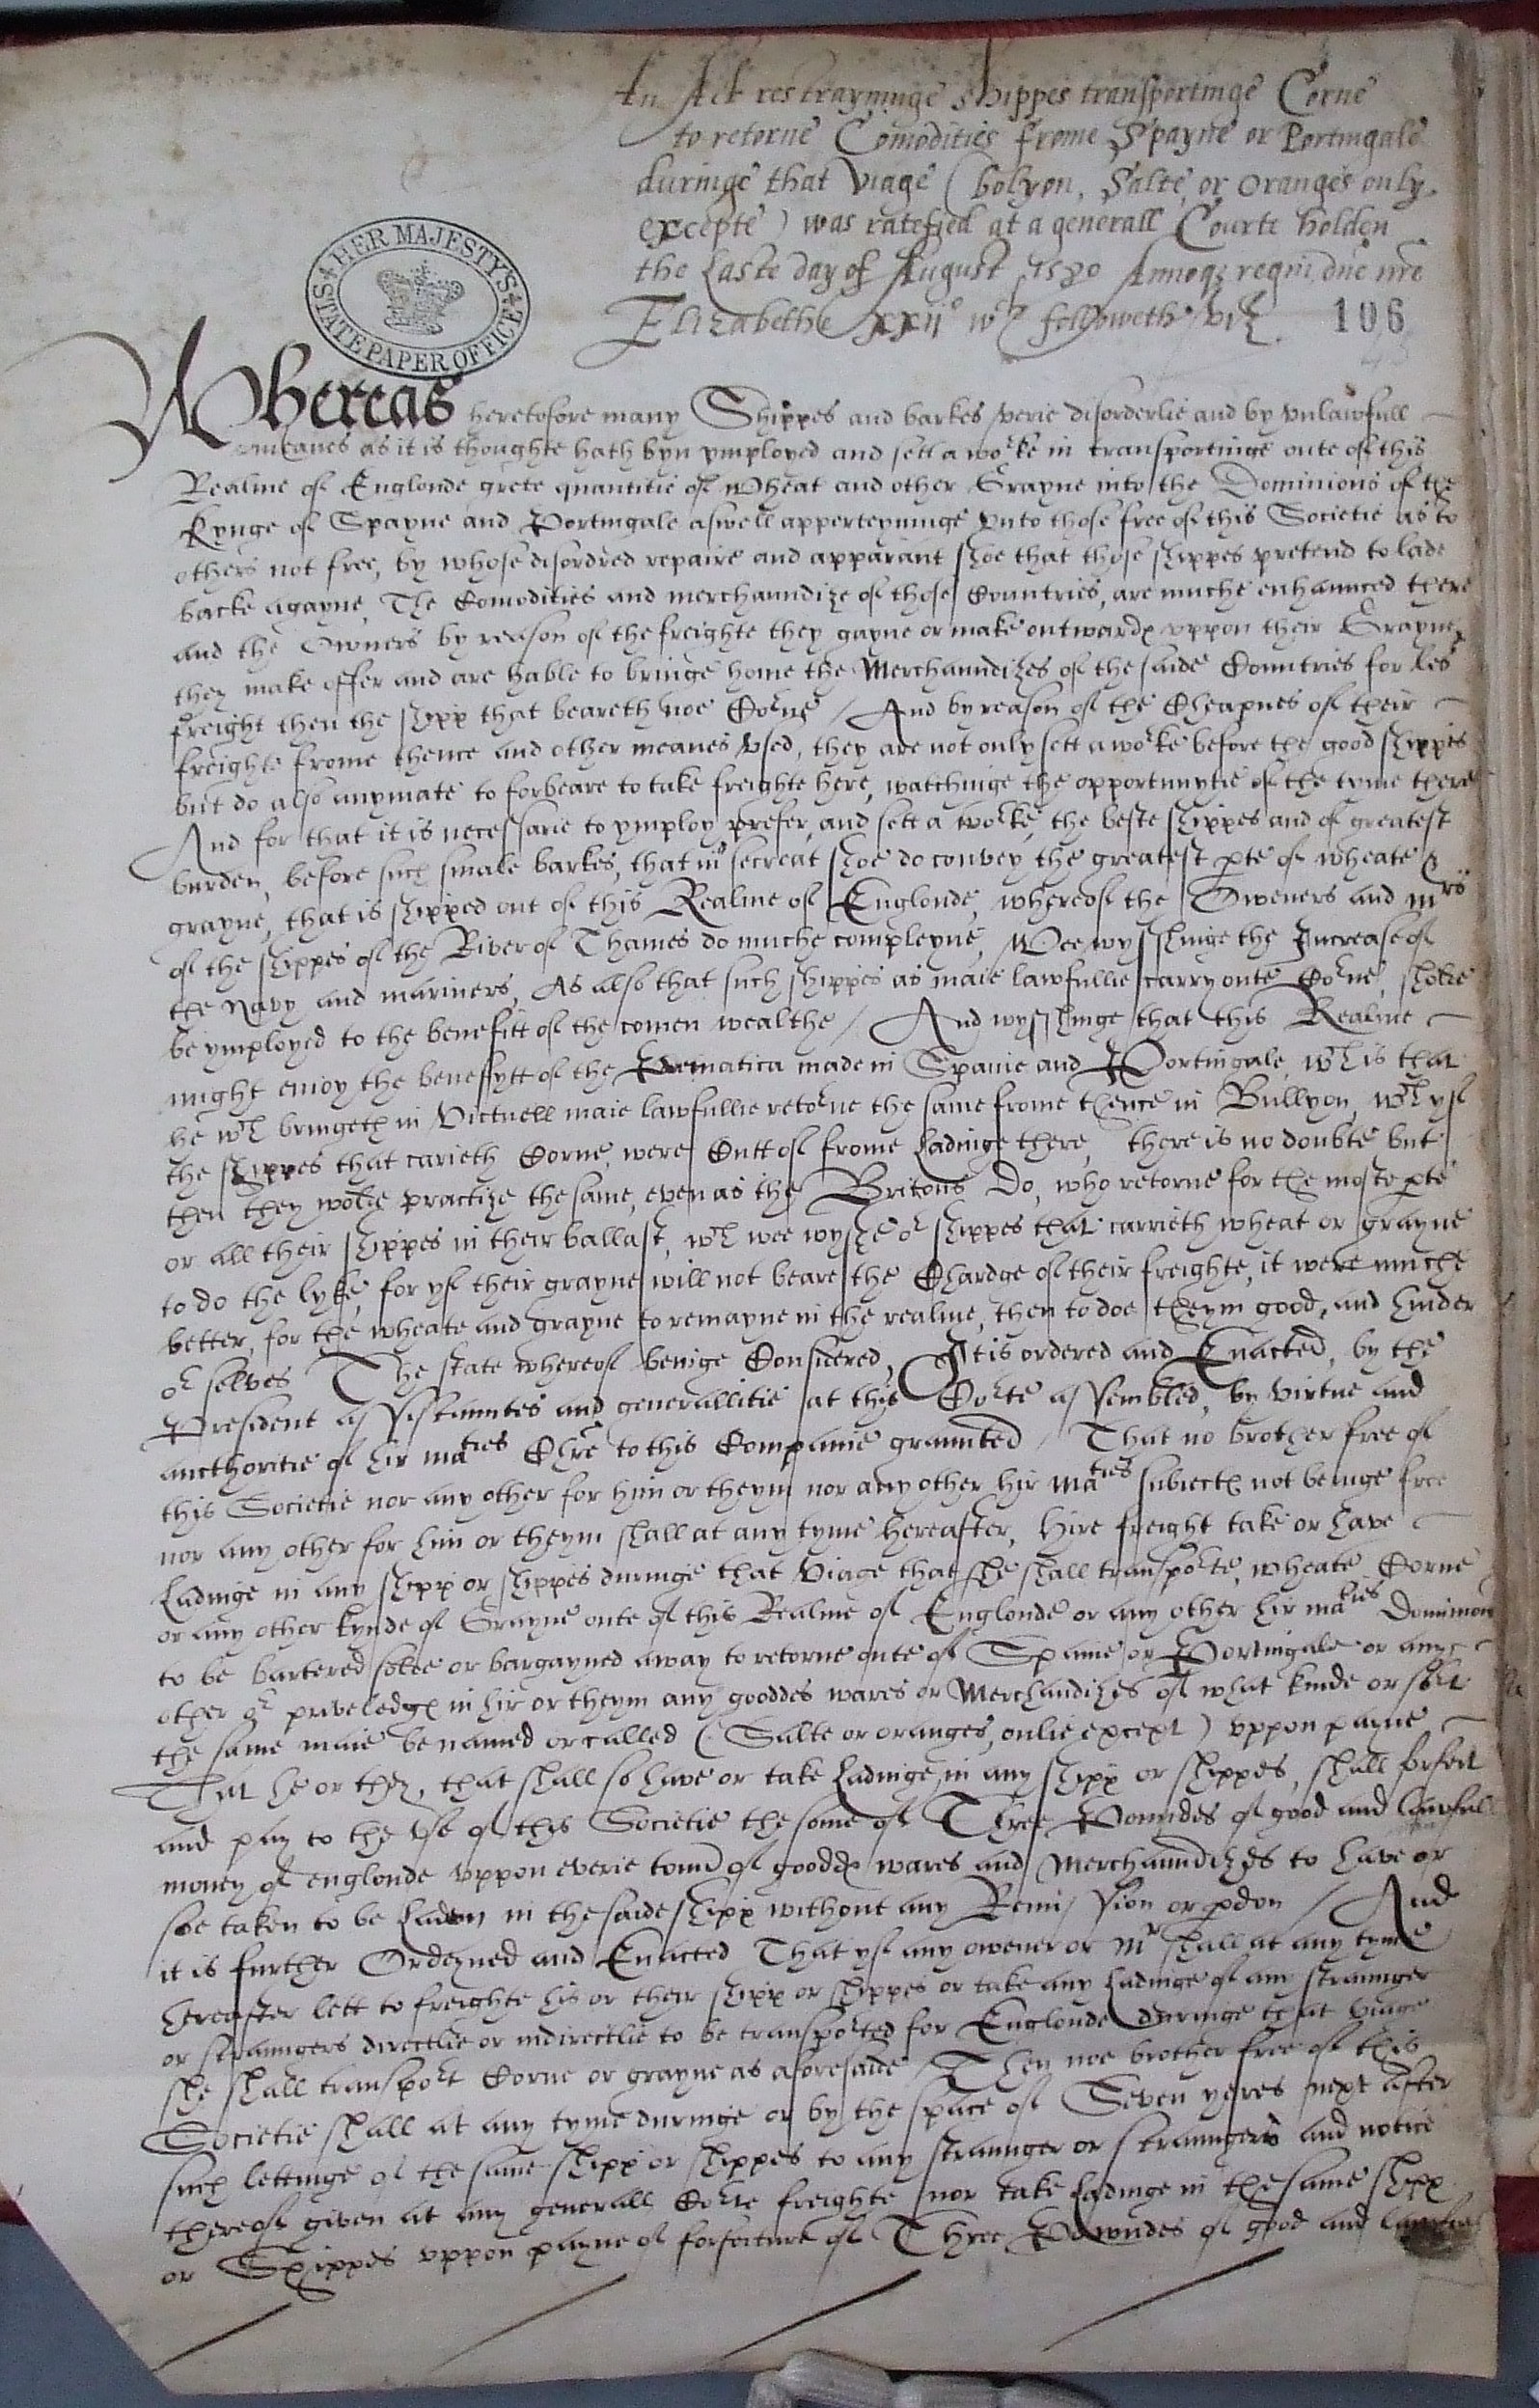 An Act restrayninge shippes transportinge Corne
to retorne Comodities frome Spayne or Portingale
duringe that viage (bolyon, Salte, or Oranges only
excepte) was ratefyed at a generall Courte holden
the laste day of August 1580 Annoqz regni dne nre
Elizabethe xxij° wch followeth viz
106
HER MAJESTY'S STATE PAPER OFFICE
Whereas heretofore many Shippes and barkes verie disorderlie and by vnlawfull
meanes as it is thoughte hath byn ymployed and sett a worke in transportinge oute of this
Realme of Englonde grete quantitie of Wheat and other Grayne into the Dominions of the
Kynge of Spayne and Portingale aswell apperteyninge vnto those free of this Societie as to
others not free, by whose disordred repaire and apparant shoe that those shippes pretend to lade
backe agayne, The Comodities and merchaundize of those Countries, are muche enhaunced there
and the Owners by reason of the freighte they gayne or make outwardes vppon their Grayne,
they make offer and are hable to bringe home the Merchaundizes of the saide Countries for les
freight then the shipp that beareth noe Corne / And by reason of the Cheapnes of their
freighte frome thence and other meanes vsed, they are not only sett a worke before the good shippes
but do also anymate to forbeare to take freighte here, watchinge the opportunytie of the tyme there
And for that it is necessarie to ymploy, prefer, and sett a worke, the beste shippes and of greatest
burden, before such smale barkes, that in secreat shoe do convey the greatest pte of wheate &
grayne, that is shipped out of this Realme of Englonde, whereof the Oweners and mrs
of the shippes of the River of Thames do muche compleyne, Wee wysshinge the Increase of
the Navy and mariners, As also that such shippes as maie lawfullie carry oute Corne, sholde
be ymployed to the benefitt of the comen wealthe / And wysshinge that this Realme
might enioy the benefytt of the Prematica made in Spanie and Portingale, wch is that
he wch bringeth in Victuell maie lawfullie retorne the same frome thence in Bullyon, wch yf
the shippes that carieth Corne, were Cutt of frome Ladinge there, there is no doubte but
then they wolde practize the same, even as the Britons do, who retorne for the moste pte
or all their shippes in their ballast, wch wee wyshe or shippes that carrieth wheat or grayne
to do the lyke, for yf their grayne will not beare the Chardge of their freighte, it were muche
better, for the wheate and grayne to remayne in the realme, then to doe theym good, and hinder
or selves The state whereof beinge Considered, It is ordered and Enacted, by the
President assistauntes and generallitie at this Corte assembled, by virtue and
aucthoritie of hir maties Chre to this Companie graunted / That no brother free of
this Societie nor any other for him or theym nor any other hir maties subiectes not beinge free
nor any other for him or theym shall at any tyme hereafter, hire freight take or have
Ladinge in any shipp or shippes duringe that Viage that she shall transporte, wheate Corne
or any other kynde of Grayne oute of this Realme of Englonde or any other hir maties Dominions
to be bartered solde or bargayned away to retorne oute of Spanie or Portingale or any
other or priveledges in hir or theym any gooddes wares or Merchandizes of what kinde or sort
the same maie be named or called (Salte or oranges, onlie except) vppon payne
That he or they, that shall so have or take Ladinge, in any shipp or shippes, shall forfeit
and pay to the vse of this Societie the some of Three Poundes of good and lawfull
money of englonde vppon everie tonn of gooddes wares and Merchaundizes to have or
soe taken to be Laden in the saide shipp without any Remission or pdon / And
it is further Ordeyned and Enacted That yf any owener or Mr shall at any tyme
hereafter lett to freighte his or their shipp or shippes or take any Ladinge of any straunger
or straungers directlie or indirectlie to be transported for Englonde duringe that viage
she shall transport Corne or grayne as aforesaide / Then noe brother free of this
Societie shall at any tyme duringe or by the space of Seven yeres next after
such lettinge of the same shipp or shippes to any straunger or straungers and notice
thereof given at any generall Corte freighte nor take Ladinge in the same shipp
or Shippes vppon payne of forfeiture of Three Powndes of good and lawfull